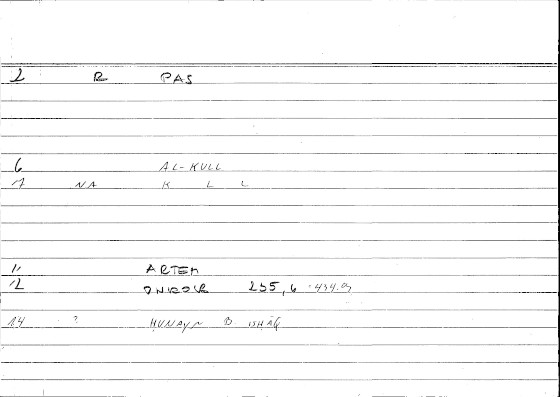 2 R PAS
6 AL-KULL
7 NA K L L
11 ARTEM
12 ONIROCR 255,6 -434.9
14 ? HUNAYN B ISHĀQ